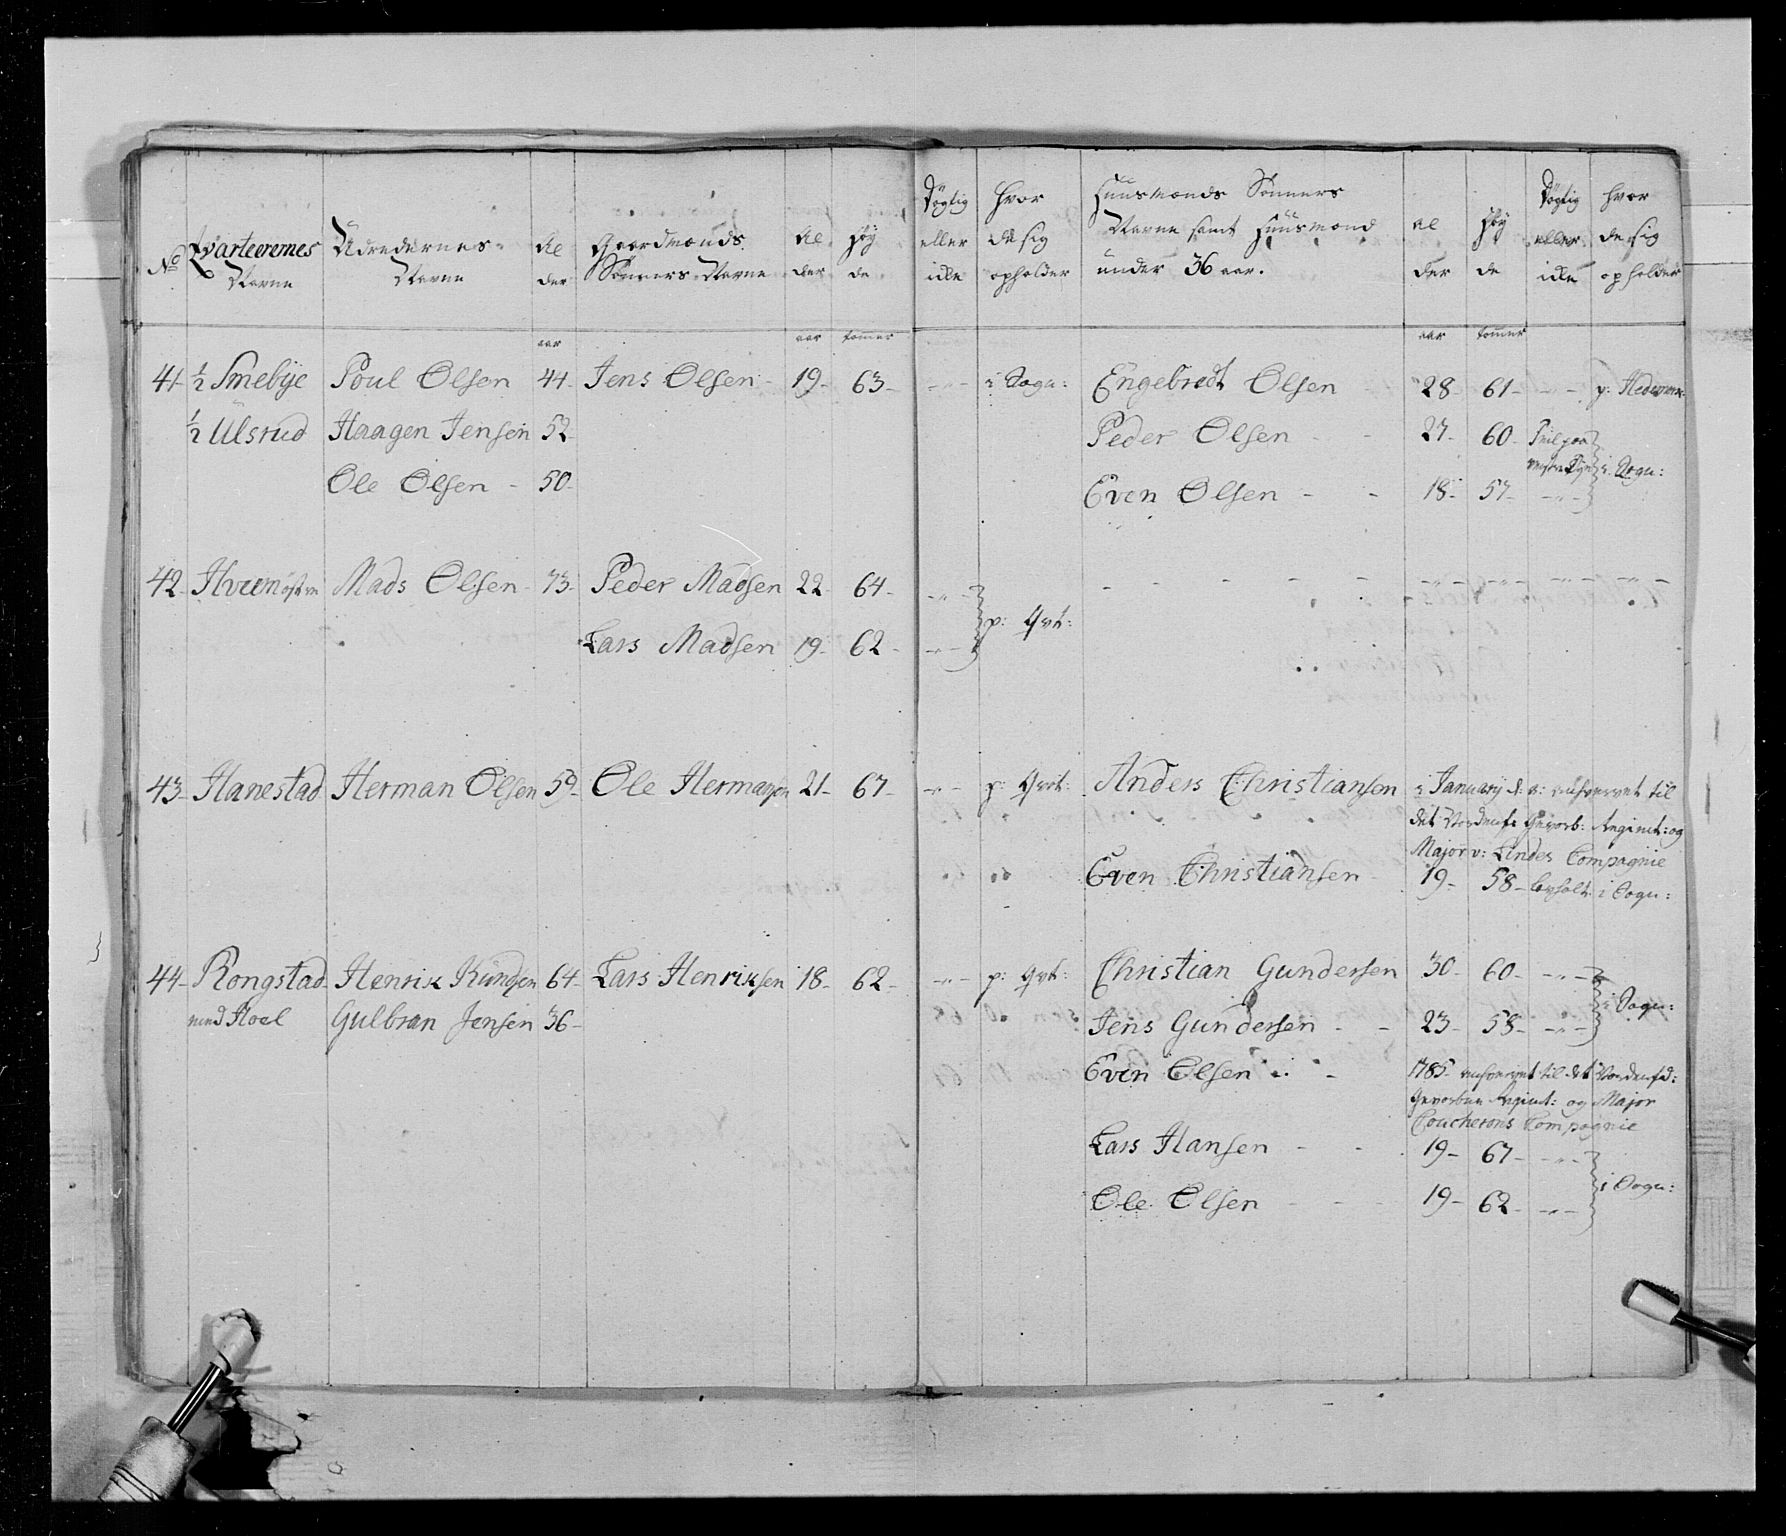 No Qvarteerernes Navne | Udredernes Navne | Al der | Gaardmænds Sønners Navne | Al der | Høy de | Dygtig eller ikke | Hvor de sig opholder | Huusmænds Sønners Navne samt Huusmænd under 36 aar. | Al der | Høy de | Dygtig eller ikke | hvor de sig opholder
aar | aar | tommer | aar | tommer
41- ½ Smebye | Poul Olsen | 44- | Jens Olsen- | 19- | 63- | -"- | i Sogn: | Engebredt Olsen | 28- | 61- | -"- | p: Hedemar
½ Ulsrud | Haagen Jensen | 52- | Peder Olsen - - | 27- | 60-
Ole Olsen - | 50- | i Sogn:
Even Olsen - - | 18- | 57- | -"-
42- Hveem østre | Mads Olsen- | 73- | Peder Madsen | 22- | 64- | -"- | - - - - - | -"- | -"- | -"- | -"-
p: Qvt:
Lars Madsen | 19- | 62- | -"-
43- Hanestad | Herman Olsen | 59- | Ole Hermansen | 21- | 67- | -"- | p: Qvt: | Anders Christiansen | i January d: a: til
det Nordenf: Gevorb: Regimt: og
Major v: Lindes Compagnie
Even Christiansen- | 19- | 58- | i Sogn:
44- Rongstad | Henrik Knudsen | 64- | Lars Henriksen | 18- | 62- | -"- | p: Qvt: | Christian Gundersen | 30- | 60- | -"-
i Sogn:
med Hoel | Gulbran Jensen | 36- | Jens Gundersen - - | 23- | 58- | -"-
Even Olsen - - | 1785- til det Nordenfd:
Gevorbne Regimt: og Major
Coucherons Compagnie
Lars Hansen - - | 19- | 67- | -"-
i Sogn:
Ole Olsen - - - | 19- | 62- | -"-